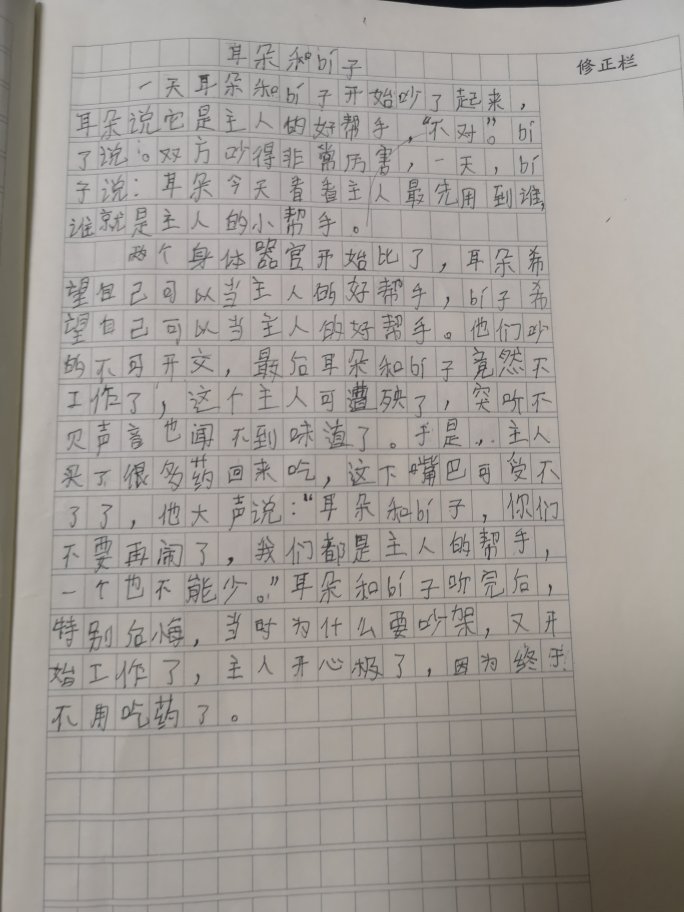 修正栏
耳朵和bí子
一天耳朵和bí子开始吵了起来，
耳朵说它是主人的好帮手，“不对”。bí
了说：。双方吵得非常厉害，一天，bí
子说：耳朵今天看看主人最先用到谁，
谁就是主人的小帮手。
两个身体器官开始比了，耳朵希
望自己可以当主人的好帮手，bí子希
望自己可以当主人的好帮手。他们吵
的不可开交，最后耳朵和bí子竟然不
工作了，这个主人可遭殃了，突听不
贝声音也闻不到味道了。于是，主人
买了很多药回来吃，这下嘴巴可受不
了了，他大声说：“耳朵和bí子，你们
不要再闹了，我们都是主人的帮手，
一个也不能少。”耳朵和bí子听完后，
特别后悔，当时为什么要吵架，又开
始工作了，主人开心极了，因为终于
不用吃药了。